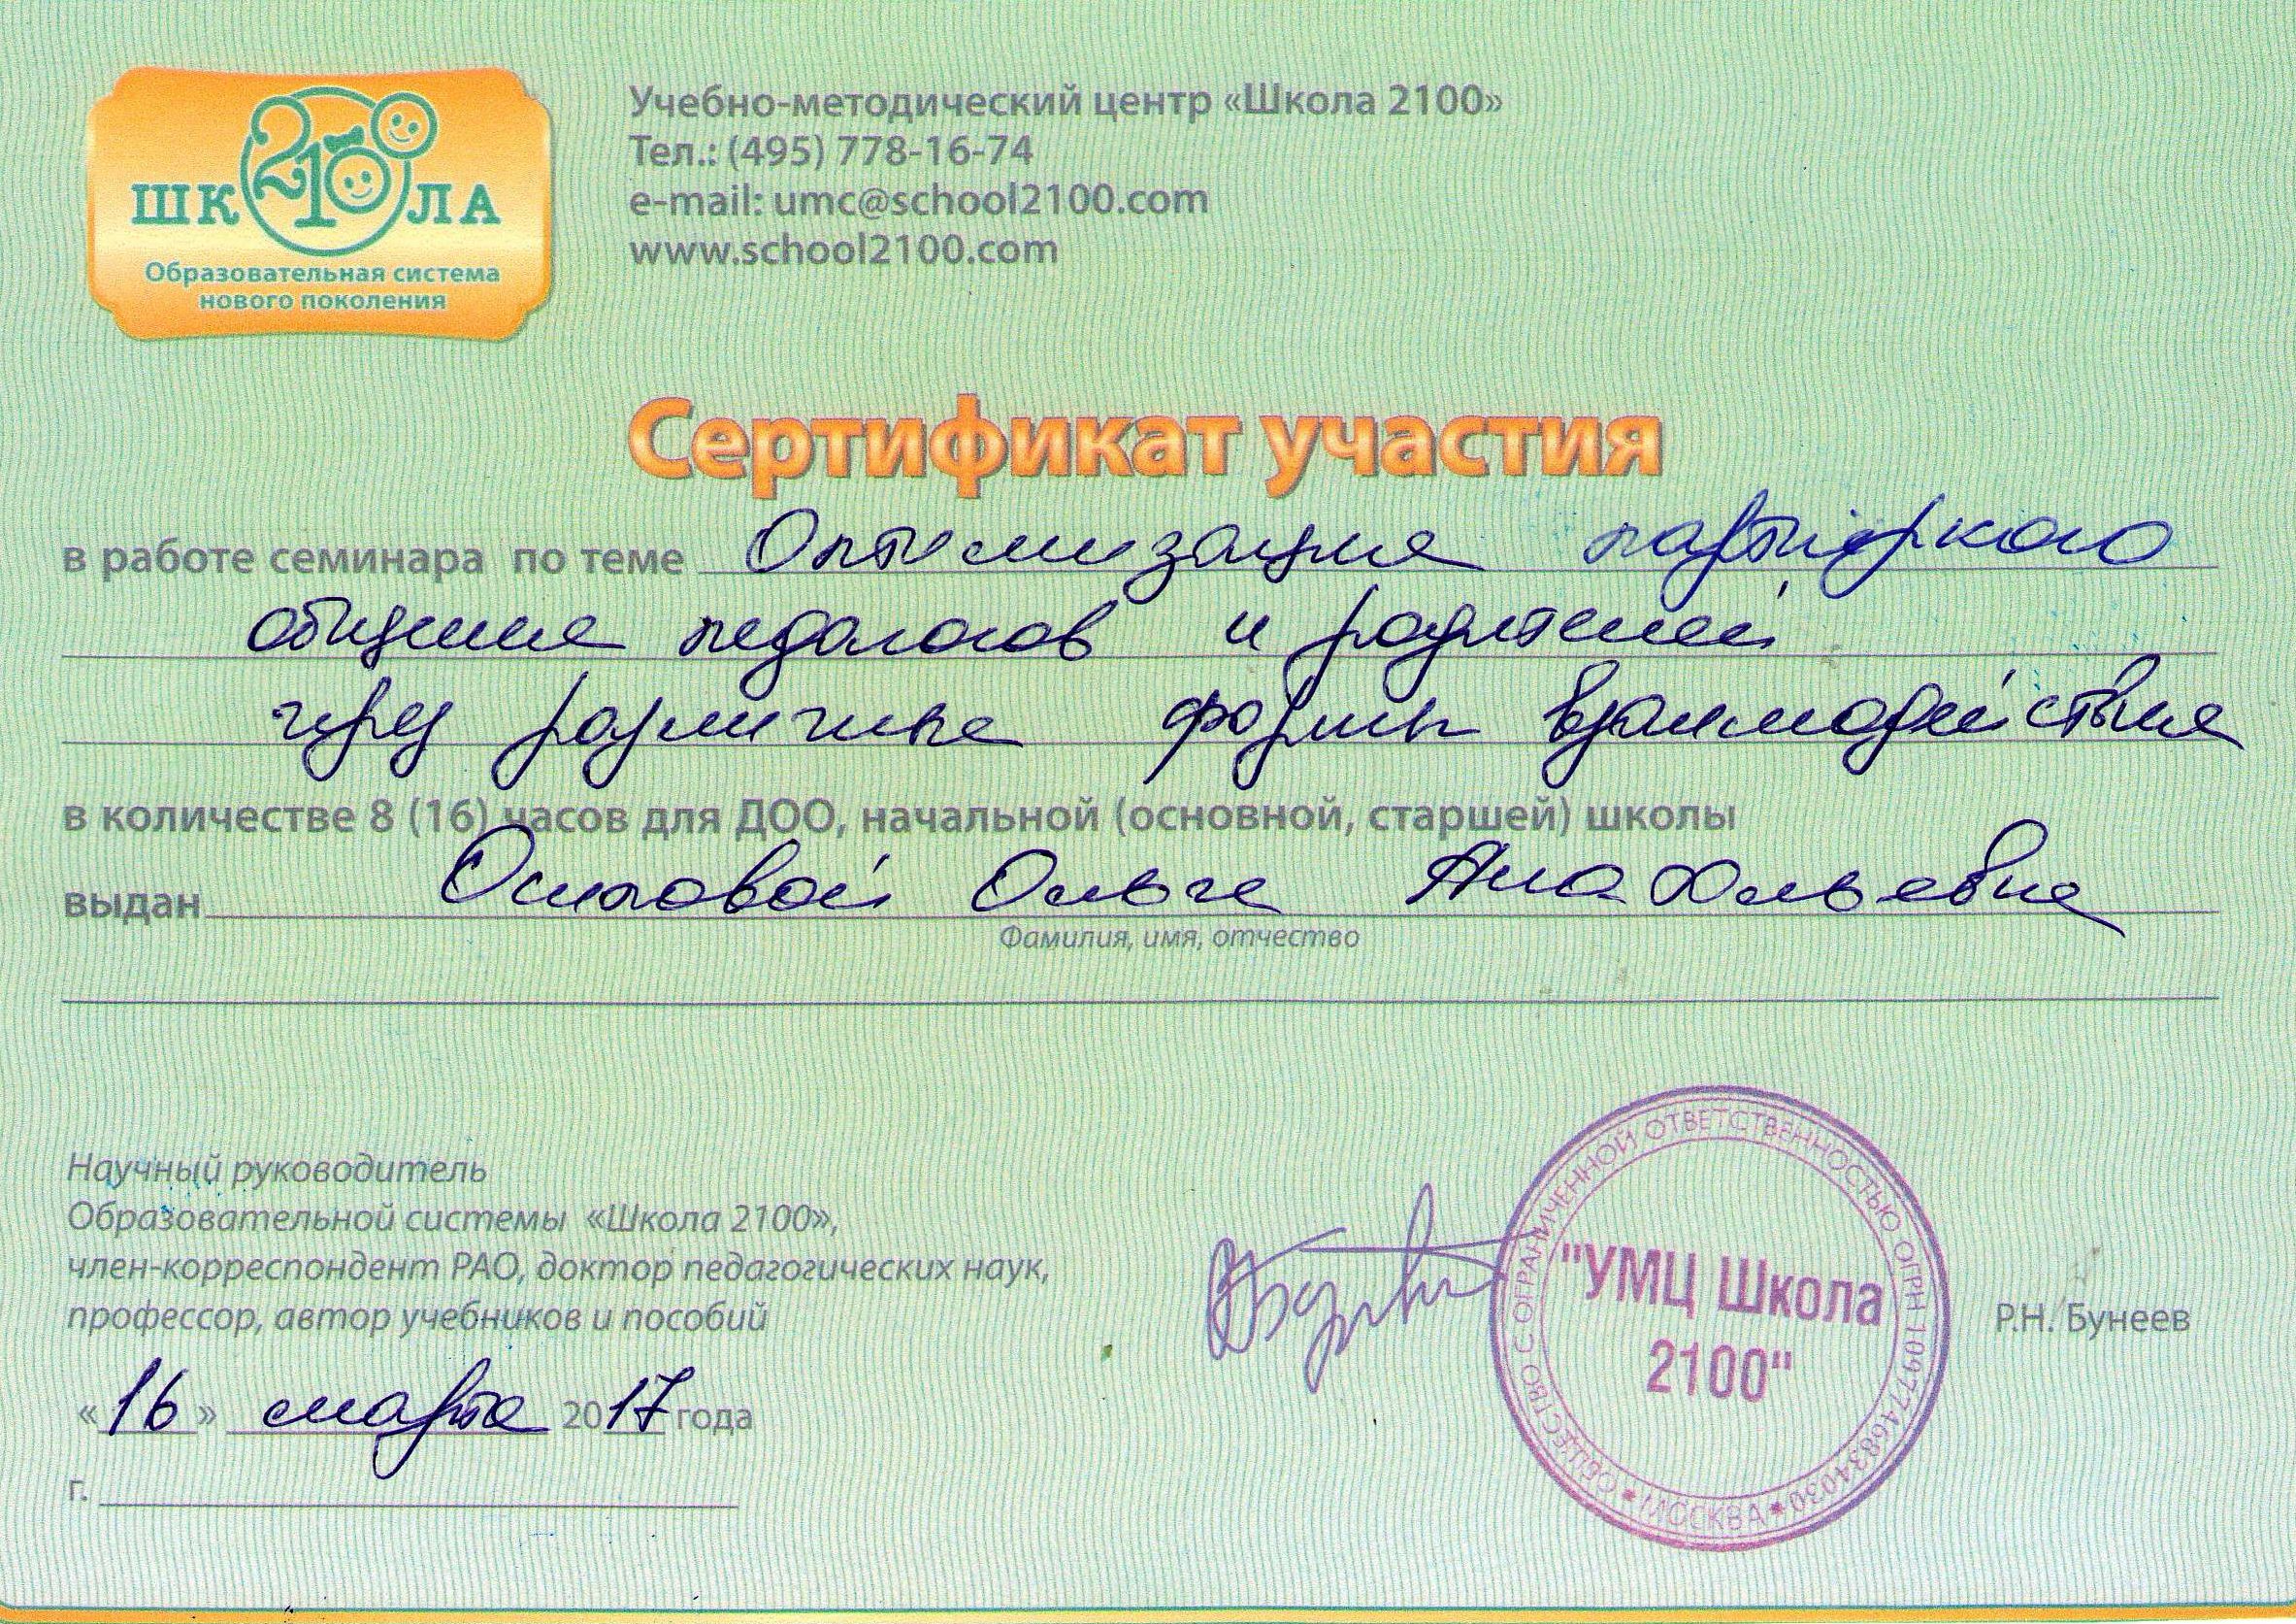 ШКОЛА
2100
Образовательная система
нового поколения
Учебно-методический центр «Школа 2100»
Тел.: (495) 778-16-74
e-mail: umc@school2100.com
www.school2100.com
Сертификат участия
в работе семинара по теме Оптимизация
общения педагогов и родителей
через различные формы взаимодействия
в количестве 8 (16) часов для ДОО, начальной (основной, старшей) школы
выдан Осиповой Ольге Анатольевне
Фамилия, имя, отчество
Научный руководитель
Образовательной системы «Школа 2100»,
член-корреспондент РАО, доктор педагогических наук,
профессор, автор учебников и пособий
Р.Н. Бунеев
«16» марта 2017 года
г.
ОБЩЕСТВО С ОГРАНИЧЕННОЙ ОТВЕТСТВЕННОСТЬЮ ОГРН 1097746834030
* МОСКВА *
"УМЦ Школа
2100"